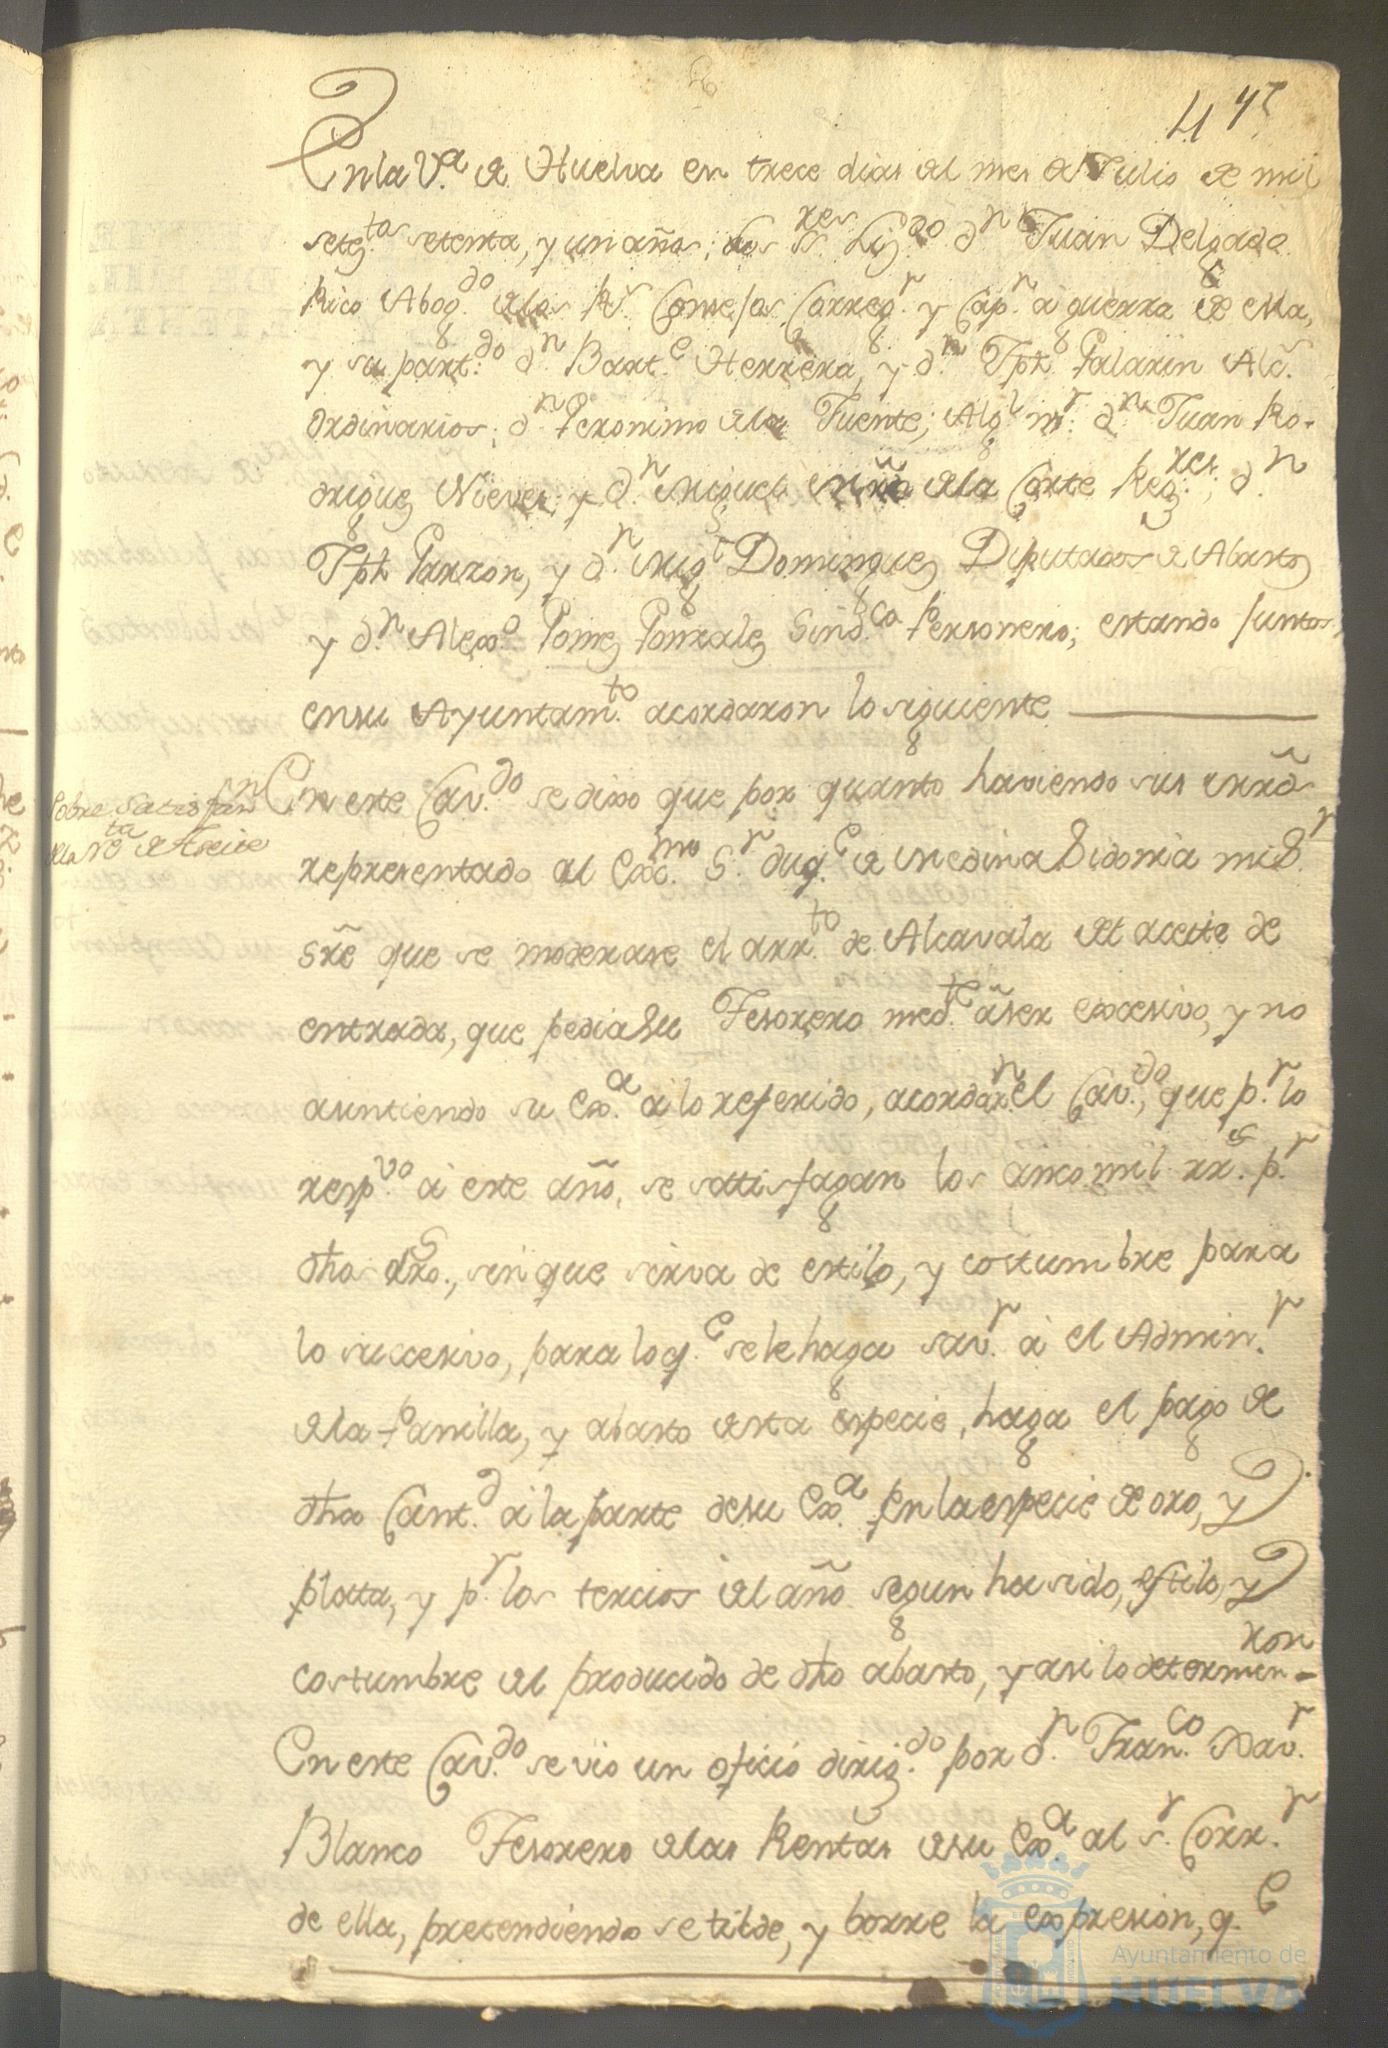 47
En la V.ª de Huelva en trece dias del mes de Julio de mil
seteg.tos setenta, y un años; los S.res Liz.do d.n Juan Delgado
Rico Abog.do de los R.s Consejos Correg.r y Cap.n à guerra de ella,
y su part.do d.n Bart.e Herrera, y d.n Jph. Palarin Alc.s
Ordinarios; d.n Geronimo de la Fuente; Alg.l m.r d.n Juan Ro-
driguez Nieves; y d.n Miguel de la Corte Reg.res; d.n
Jph Garzon, y d.n Mig.l Dominguez Diputados de Abastos
y d.n Alexo Gomez Gonzalez Sind.co Personero; estando juntos,
en su Ayuntam.to acordaron lo siguiente
Sobre satisfan
de la r.ta de Aceite
En este Cav.do se dixo que por quanto haviendo sus mrd̃s
representado al Exc.mo S.r duq.e de Medina Sidonia mi S.r
sr̃e que se moderase el arr.to de Alcavala del aceite de
entrada, que pedia su Tesorero med.te à ser excesivo, y no
asintiendo su Ex.ª à lo referido, acordar.n el Cav.do, que p.r lo
resp.vo à este año, se satisfagan los cinco mil rr.s p.r
dho dro., sin que sirva de estilo, y costumbre para
lo succesivo, para lo q.e se le haga sav.r à el Admin.r
de la Panilla, y abasto desta especie, haga el pago de
dha Cant.d à la parte de su Ex.ª en la especie de oro, y
plata, y p.r los tercios del año segun ha sido, estilo, y
costumbre del producido de dho abasto, y asi lo determin-ron
En este Cav.do se vio un oficio dirig.do por d.n Fran.co Xav.r
Blanco Tesorero de las Rentas de su Ex.ª al s.r Corr.r
de ella, pretendiendo se tilde, y borre la expresion, q.e
Ayuntamiento de
HUELVA